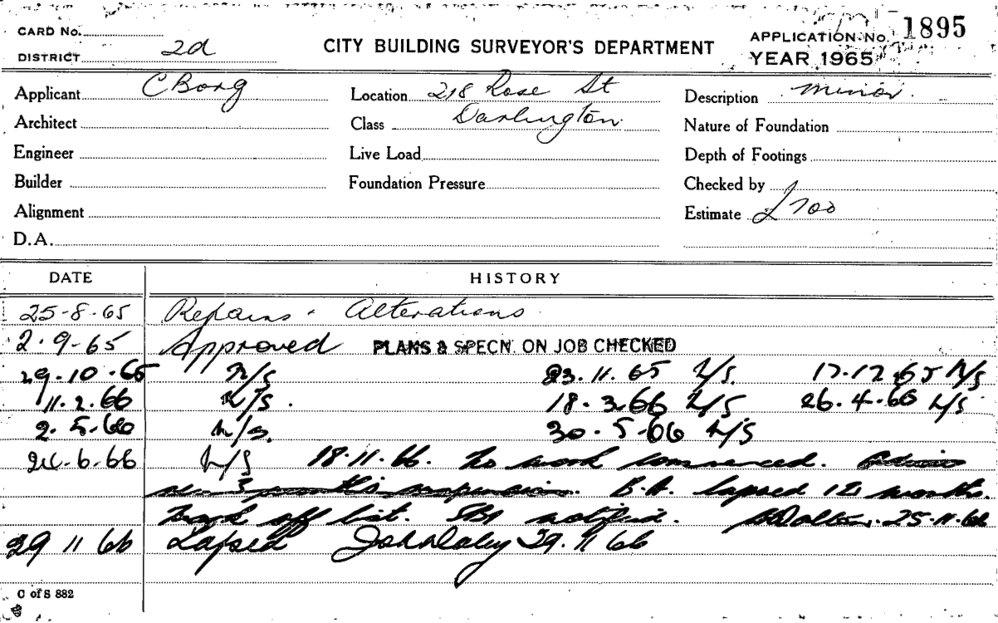 CARD No.
DISTRICT 2d
CITY BUILDING SURVEYOR'S DEPARTMENT
APPLICATION No. 1895
YEAR 1965
Applicant C Borg
Location 218 Rose St
Description minor.
Architect
Class Darlington
Nature of Foundation
Engineer
Live Load
Depth of Footings
Builder
Foundation Pressure
Checked by
Alignment
Estimate £700
D.A.
DATE HISTORY
25-8-65 Repairs. Alterations
2.9-65 Approved PLANS & SPECN. ON JOB CHECKED
29.10.65 N/S 23.11.65 N/S. 17.12.65 N/S
11.2.66 N/S. 18.3.66 N/S 26.4.66 N/S
2.5.66 N/S. 30.5.66 N/S
24.6.66 N/S 18.11.66. No work commenced.
B.A. lapsed 12 months.
mark off list. notified. 25.11.66
29 11 66 Lapsed 29.11.66
C of S 882